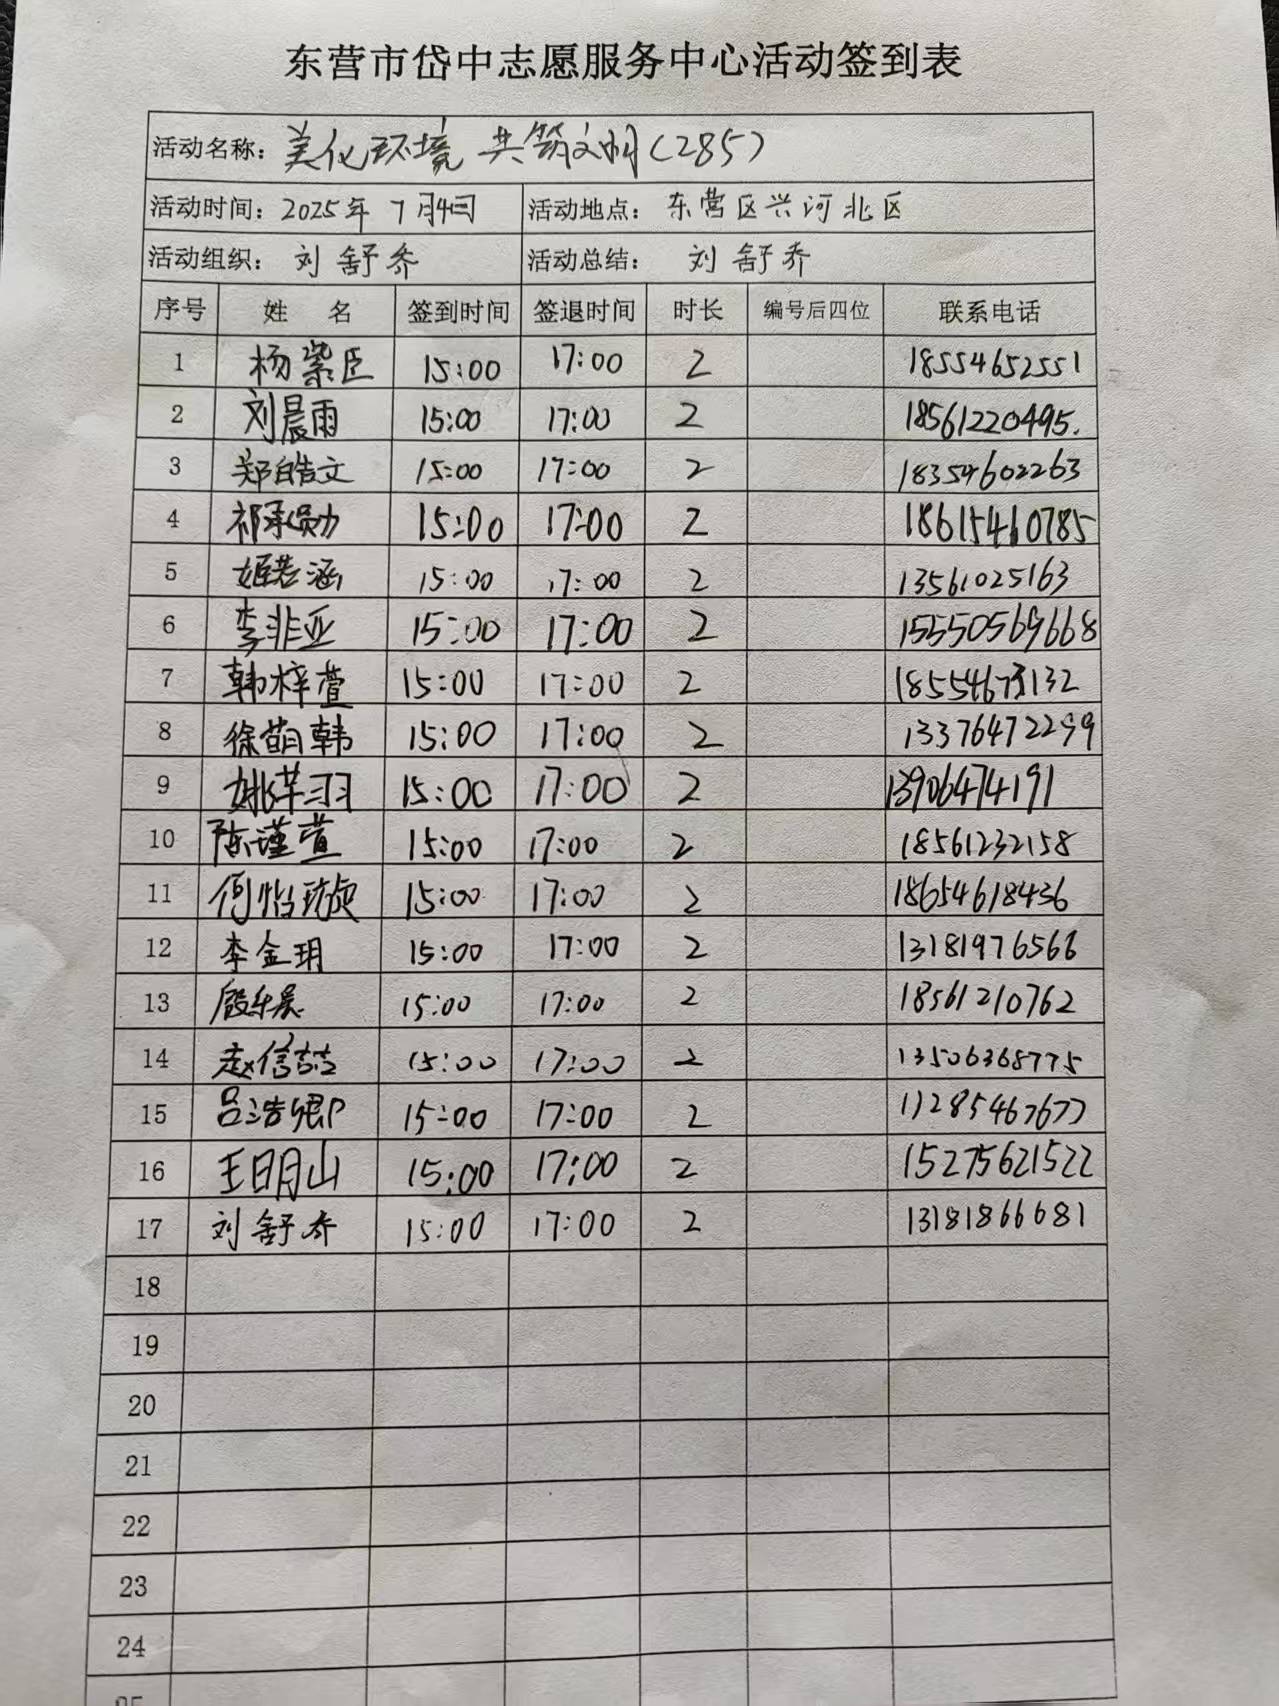 东营市岱中志愿服务中心活动签到表
活动名称：美化环境 共筑文明（285）
活动时间：2025年 7月4日 活动地点：东营区兴河北区
活动组织：刘舒乔 活动总结：刘舒乔
序号 姓 名 签到时间 签退时间 时长 编号后四位 联系电话
1 杨紫臣 15:00 17:00 2 18554652551
2 刘晨雨 15:00 17:00 2 18561220495.
3 郑皓文 15:00 17:00 2 18354602263
4 祁承勋 15:00 17:00 2 18615460785
5 姬若涵 15:00 17:00 2 13561025163
6 李非亚 15:00 17:00 2 15550569668
7 韩梓萱 15:00 17:00 2
8 徐萌韩 15:00 17:00 2 13376472299
9 姚芊羽 15:00 17:00 2 13906474191
10 陈瑾萱 15:00 17:00 2 18561232158
11 何怡璇 15:00 17:00 2 18654618436
12 李金玥 15:00 17:00 2 13181976566
13 15:00 17:00 2 18561210762
14 赵信喆 15:00 17:00 2 13506368775
15 吕浩卿 15:00 17:00 2
16 王明山 15:00 17:00 2 15275621522
17 刘舒乔 15:00 17:00 2 13181866681
18
19
20
21
22
23
24